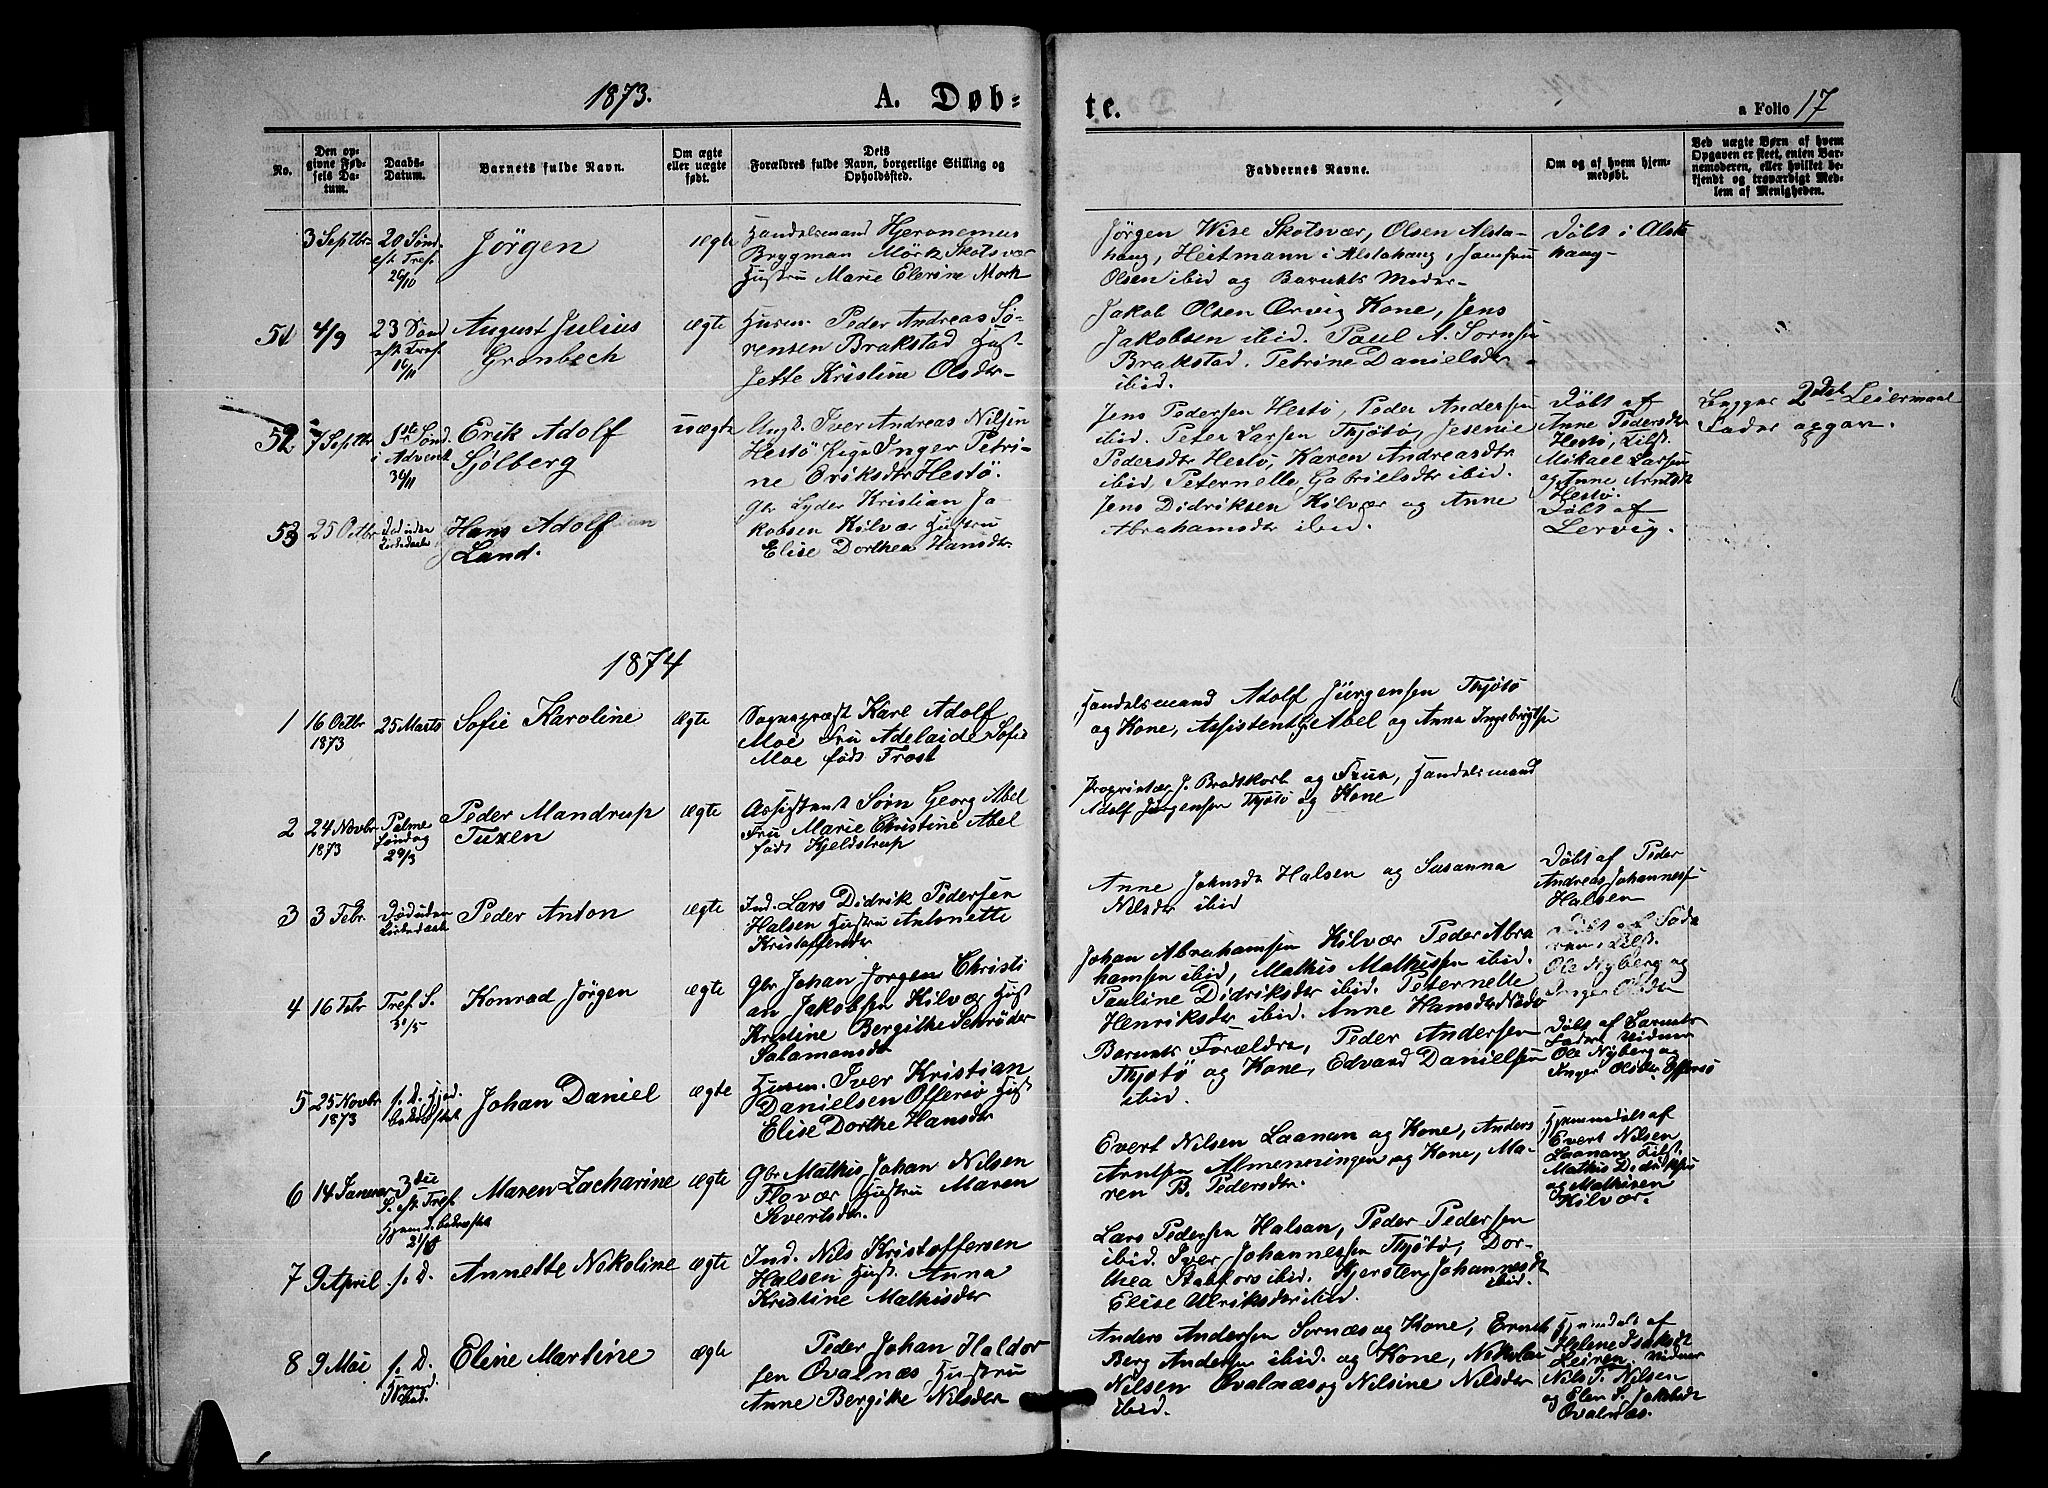 1873.
A. Døb-
te.
a Folio 17
No.
Den op-
givne Fød-
sels Da-
tum.
Daabs-
Datum.
Barnets fulde Navn.
Om ægte
eller uægte
født.
Dets
Forældres fulde Navn, borgerlige Stilling og
Opholdssted.
Faddernes Navne.
Om og af hvem hjem-
medøbt.
Ved uægte Børn af hvem
Opgaven er skeet, enten Bar-
nemoderen, eller hvilket be-
kjendt og troværdigt Med-
lem af Menigheden.
3 Septbr
20 Sønd
eft. Tref.
26/10
Jörgen
ægte
Handelsmand Hjeronemus
Brygman Mörk Skotsvær
Hustru Marie Elerine Mörk
Jörgen Wise Skotsvær, Olsen Alsta-
haug, Heitmann i Alstahaug, Jomfru
Olsen ibid og Barnets Moder
Döbt i Alsta
haug
51
4/9
23 Sønd
eft. Tref.
16/11
August Julius
Grønbech
ægte
Husm. Peder Andreas Sö-
rensen Brakstad Hust
Jette Kristine Olsdtr
Jakob Olsen Ørvig Kone, Jens
Jakobsen ibid. Paul A. Sörnsen
Brakstad. Petrine Danielsdtr
ibid.
52
7 Septbr
1ste Sönd
i Advent
30/11
Erik Adolf
Sjölberg
uægte
Ungk. Iver Andreas Nilsen
Hestö Pige Inger Petri-
ne Eriksdtr Hestö.
Jens Pedersen Hestö, Peder Andersen
ibid. Peter Larsen Thjötö, Jesenie
Pedersdtr Hestö, Karen Andreasdtr
ibid, Peternelle Gabrielsdtr ibid.
Döbt af
Anne Pedersdtr
Hestö, Tilst.
Mikael Larsen
og Anne Arntsdtr
Hestö.
Begges 2det Leiermaal
Fader opgav.
53
25 Octbr
Död uden
Kirkedaab
Hans Adolf
Land.
Gbr Lyder Kristian Ja-
kobsen Kilvær Hustru
Elise Dorthea Hansdtr
Jens Didriksen Kilvær og Anne
Abrahamsdtr ibid.
Döbt af
Lervig.
1874
1
16 Octbr
1873
25 Marts
Sofie Karoline
ægte
Sognepræst Karl Adolf
Moe Fru Adelaide Sofie
Moe föds Frost
Handelsmand Adolf Jürgensen Thjötö
og Kone, Assistent Abel og Anna Ingebrigtsen
2
24 Novbr
1873
Palme
Söndag
29/3
Peder Mandrup
Tuxen
ægte
Assistent Sörn Georg Abel
Fru Marie Christine Abel
föds Kjeldstrup
Proprietær J. Brodtkorb og Frue, Handelsmand
Adolf Jürgensen Thjötö og Kone
3
3 Febr
Död uden
Kirkedaab
Peder Anton
ægte
Ind. Lars Didrik Pedersen
Halsen Hustru Antonette
Kristoffersdtr
Anne Johnsdtr Halsen og Susanna
Nilsdtr ibid
Döbt af Peder
Andreas Johannesen
Halsen
4
16 Febr
Tref. S.
31/5
Konrad Jörgen
ægte
Gbr Johan Jörgen Christi
an Jakobsen Kilvær Hust
Kristine Bergithe Schröder
Salamonsdt
Johan Abrahamsen Kilvær Peder Abra
hamsen ibid, Mathis Mathissen ibid.
Pauline Didriksdtr ibid. Peternelle
Henriksdtr ibid. Anne Hansdtr
Döbt af Fade
ren, Tilst.
Ole Nyberg og
Inger Olsdtr
5
25 Novbr
1873
s. D. Hjd.
bekræftet
Johan Daniel
ægte
Husm. Iver Kristian
Danielsen Offersö Hust
Elise Dorthe Hansdtr
Barnets Forældre, Peder Andersen
Thjötö og Kone, Edvard Danielsen
ibid.
Döbt af Barnets
Fader, Vidner
Ole Nyberg og
Inger Olsdtr Offersö
6
14 Januar
3die
S. eft Tref.
Hjemd. bekræftet
21/6
Maren Zacharine
ægte
Gbr Mathis Johan Nilsen
Flovær Hustru Maren
Evertsdtr.
Evert Nilsen Laanan og Kone, Anders
Arntsen Almenningen og Kone, Ma-
ren B. Pedersdtr.
Hjemmedöbt af
Evert Nilsen
Laanan Tilst.
Mathis Didriksen
og Mathisen
Kilvær.
7
9 April
s. D.
Annette Nikoline
ægte
Ind. Nils Kristoffersen
Halsen Hust. Anna
Kristine Mathisdtr
Lars Pedersen Halsan, Peder Pedersen
ibid. Iver Johannessen Thjötö, Dor-
thea ibid. Kjersten Johannesdt
ibid.
Elise Ulriksdtr ibid.
8
9 Mai
s. D.
Eline Martine
ægte
Peder Johan Haldor
sen Qvalnæs Hustru
Anne Bergithe Nilsdtr
Anders Andersen Sörnæs og Kone, Ernst
Berg Andersen ibid. og Kone, Nikolai
Nilsen Qvalnæs og Nilsine Nilsdtr
ibid.
Hjemdöbt af
Helene Isaksdt
Leiren. Vidner
Nils T. Nilsen
og Elen S. Jakobsdt
Qvalnæs.